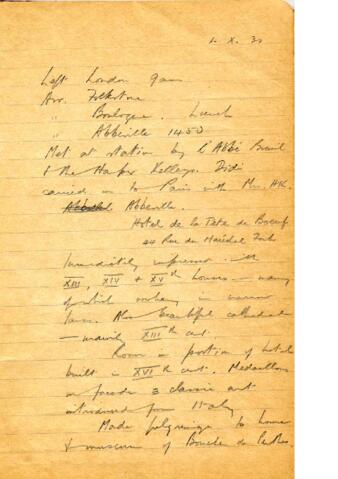 2. X. 31
Left London 9am
Arr. Folkestone
" Boulogne. Lunch
" Abbeville 1450
Met at station by l'Abbé Breuil
& the Harper Kelleys. Didi
carried on to Paris with Mrs HK.
Abbeville.
Hotel de la Tete de Boeuf
24 Rue du Maréchal Foch
Immediately impressed with
XIII, XIV & XVth houses – many
of which in narrow
lanes. Also beautiful cathedral
– mainly XIIIth cent.
Room in portion of hotel
built in XVIth cent. Medallions
on facade classic art
introduced from Italy
Made pilgrimage to home
& museum of Boucher de Perthes.